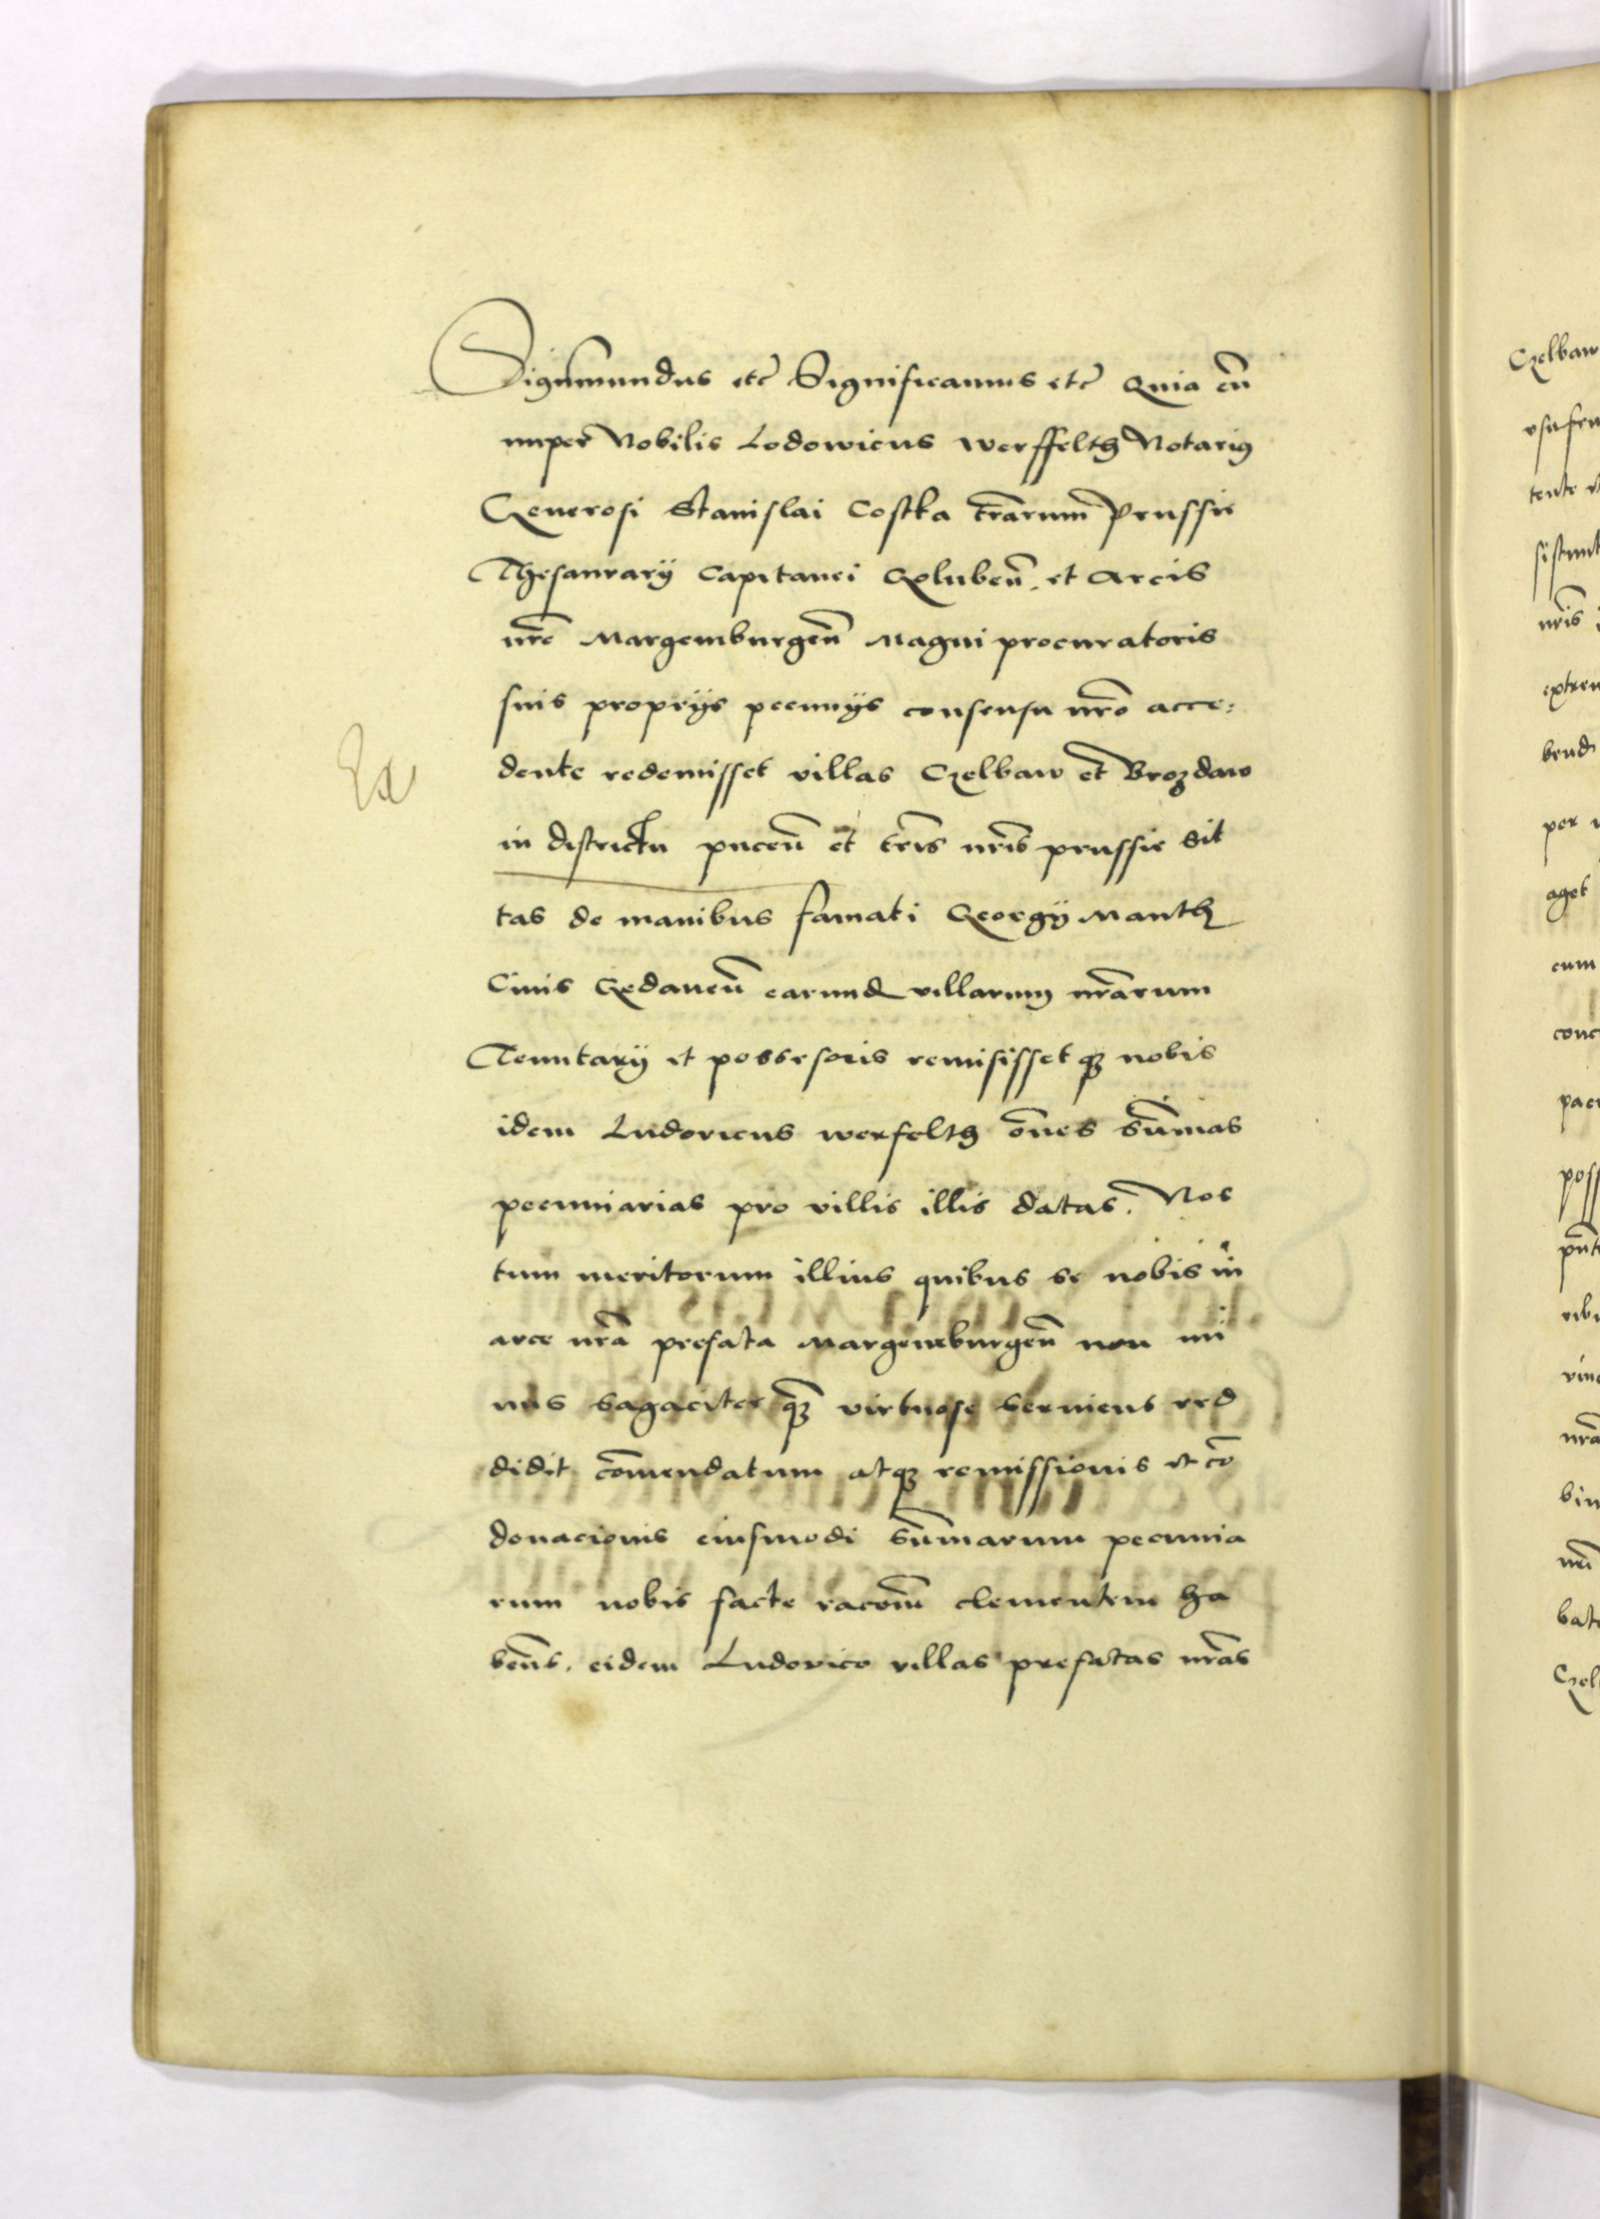 Sigismundus etc̃ Significamus etc̃ Quia cũ
nuper Nobilis Lodowicus Werffelth Notariꝰ
Generosi Stanislai Costka trãrum Prussie
Thesaurarij Capitanei Goluben̄. et Arcis
nrẽ Margemburgen̄ Magni procuratoris
suis proprijs pecunijs consensu nrõ acce:
dente redemisset villas Czelbaw et Brozdaw
in districtu pucen̄ et trĩs nrĩs prussie Sit
tas de manibus famati Georgij Manth
Ciuis Gedanen̄ earund villarum nrãrum
Tenutarij et possessoris remisisset qꝫ nobis
idem Ludovicus werfelth õnes Sũmas
pecuniarias pro villis illis datas. Nos
tum meritorum illius quibus se nobis in
arce nrã prefata Margemburgen̄ non mi
nus sagaciter qꝫ̃ virtuose seruiens red
didit cõmendatum atqꝫ remissionis et cõ
donacionis eiusmodi sũmarum pecunia
rum nobis facte racõm̃ clementem ha
ben̄s. eidem Ludovico villas prefatas nrãs
Czelbaw
tente
nrĩs
per
aget
cum